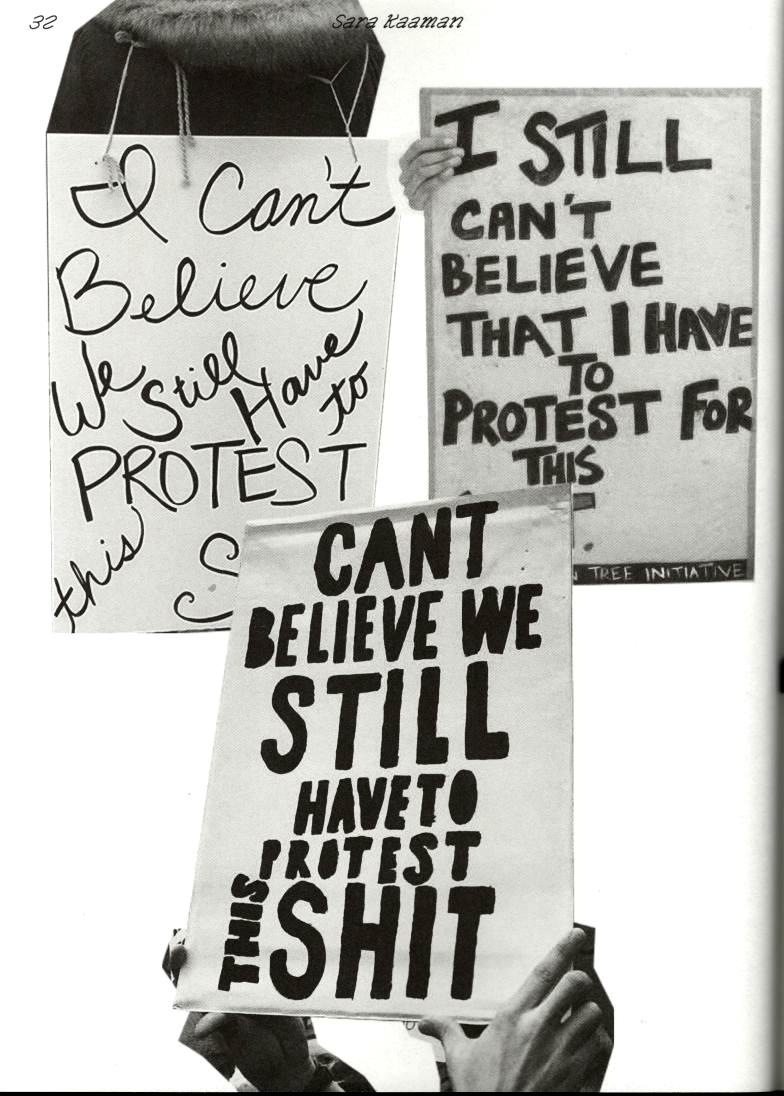 32
Sara Kaaman
I Can't
Believe
We Still Have to
PROTEST
this S
I STILL
CAN'T
BELIEVE
THAT I HAVE
TO
PROTEST FOR
THIS
TREE INITIATIVE
CANT
BELIEVE WE
STILL
HAVE TO
PROTEST
THIS SHIT